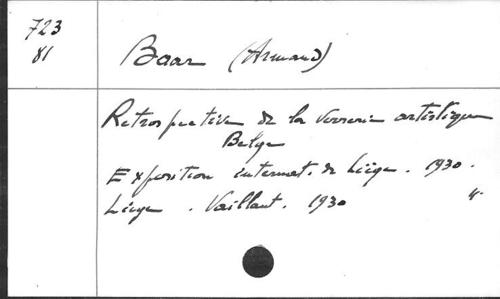 723
81
Baar (Armand)
Retrospective de la verrerie artistique
Belge
Exposition internat. de Liège. 1930.
Liège. Vaillant. 1930
4°